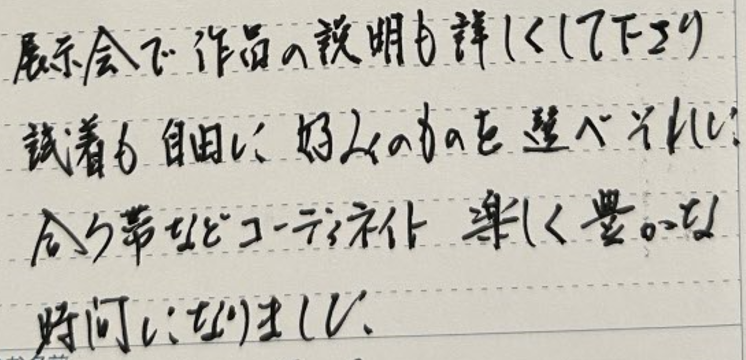 展示会で作品の説明も詳しくして下さり
試着も自由に 好みのものを選べ それに
合う帯などコーディネイト 楽しく豊かな
時間になりました。